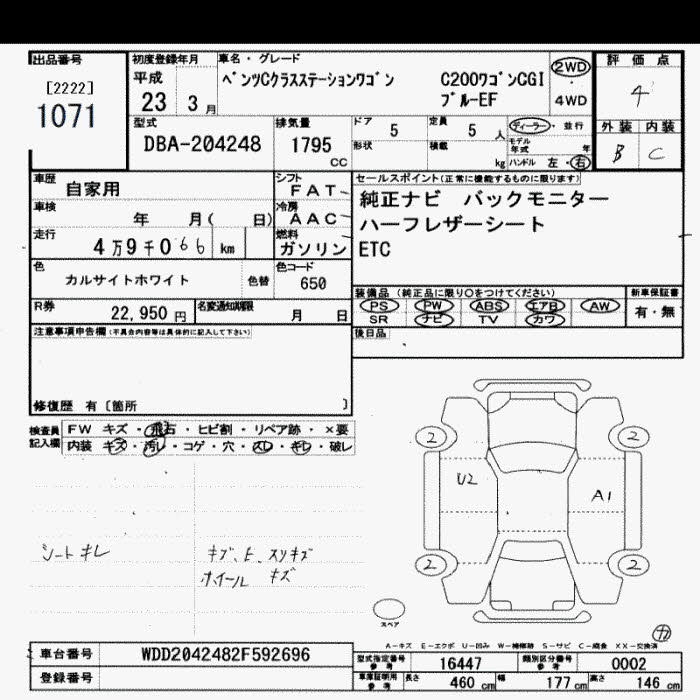 出品番号 初度登録年月 車名・グレード 評価点
[2222] 平成 ベンツCクラスステーションワゴン C200ワゴンCGI 2WD 4
1071 23 3月 ブルーEF 4WD
型式 排気量 ドア 5 定員 5人 ディーラー・並行 外装 内装
DBA-204248 1795 CC 形状 積載 kg モデル年式 年 B C
ハンドル 左・右
車歴 自家用 シフト FAT セールスポイント(正常に機能するものに限ります)
車検 年 月( 日) 冷房 AAC 純正ナビ バックモニター
走行 4万9千066 km 燃料 ガソリン ハーフレザーシート
ETC
色 カルサイトホワイト 色替 色コード 650
装備品(純正品に限り○をつけてください) 新車保証書
R券 22,950円 名変通知期限 月 日 PS PW ABS エアB AW 有・無
SR ナビ TV カワ
注意事項申告欄(不具合内容等は具体的に記入して下さい) 後日品
修復歴 有〔箇所 〕
検査員記入欄 FW キズ・飛石・ヒビ割・リペア跡・×要
内装 キズ・汚レ・コゲ・穴・スレ・キレ・破レ
2 2
U2 A1
シートキレ キズ、E、スリキズ
ホイール キズ
2 2
スペア
A-キズ E-エクボ U-凹み W-補修跡 S-サビ C-腐食 XX-交換済
車台番号 WDD2042482F592696 型式指定番号 参考 16447 類別区分番号 参考 0002
登録番号 車庫証明用 参考 長さ 460cm 幅 177cm 高さ 146cm